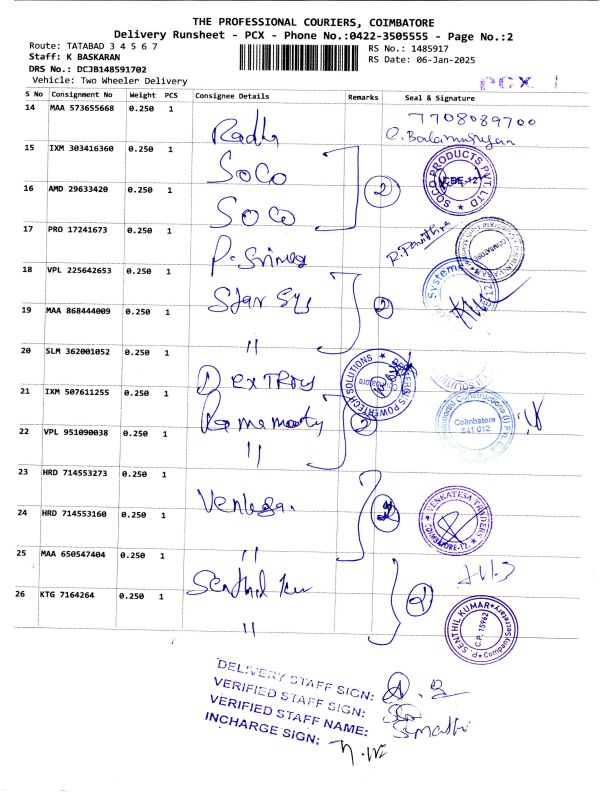 THE PROFESSIONAL COURIERS, COIMBATORE
Delivery Runsheet - PCX - Phone No.:0422-3505555 - Page No.:2
Route: TATABAD 3 4 5 6 7
RS No.: 1485917
Staff: K BASKARAN
RS Date: 06-Jan-2025
DRS No.: DCJB148591702
Vehicle: Two Wheeler Delivery
PCX
S No Consignment No Weight PCS Consignee Details Remarks Seal & Signature
14 MAA 573655668 0.250 1 Radhi 7708089700
15 IXM 303416360 0.250 1 SoCo SOCO PRODUCTS PVT. LTD
16 AMD 29633420 0.250 1 SoCo 2
17 PRO 17241673 0.250 1 COIMBATORE
18 VPL 225642653 0.250 1 Star Sys Systems
19 MAA 868444009 0.250 1 " 2
20 SLM 362001052 0.250 1 POWERTECH SOLUTIONS
21 IXM 507611255 0.250 1 Coimbatore 641 012
22 VPL 951090038 0.250 1 " 2
23 HRD 714553273 0.250 1 VENKATESA TRADERS COIMBATORE-12
24 HRD 714553160 0.250 1 " 2
25 MAA 650547404 0.250 1 Senthil
26 KTG 7164264 0.250 1 " 2 SENTHIL KUMAR Company Secretary C.P. 15962
DELIVERY STAFF SIGN:
VERIFIED STAFF SIGN:
VERIFIED STAFF NAME:
INCHARGE SIGN: